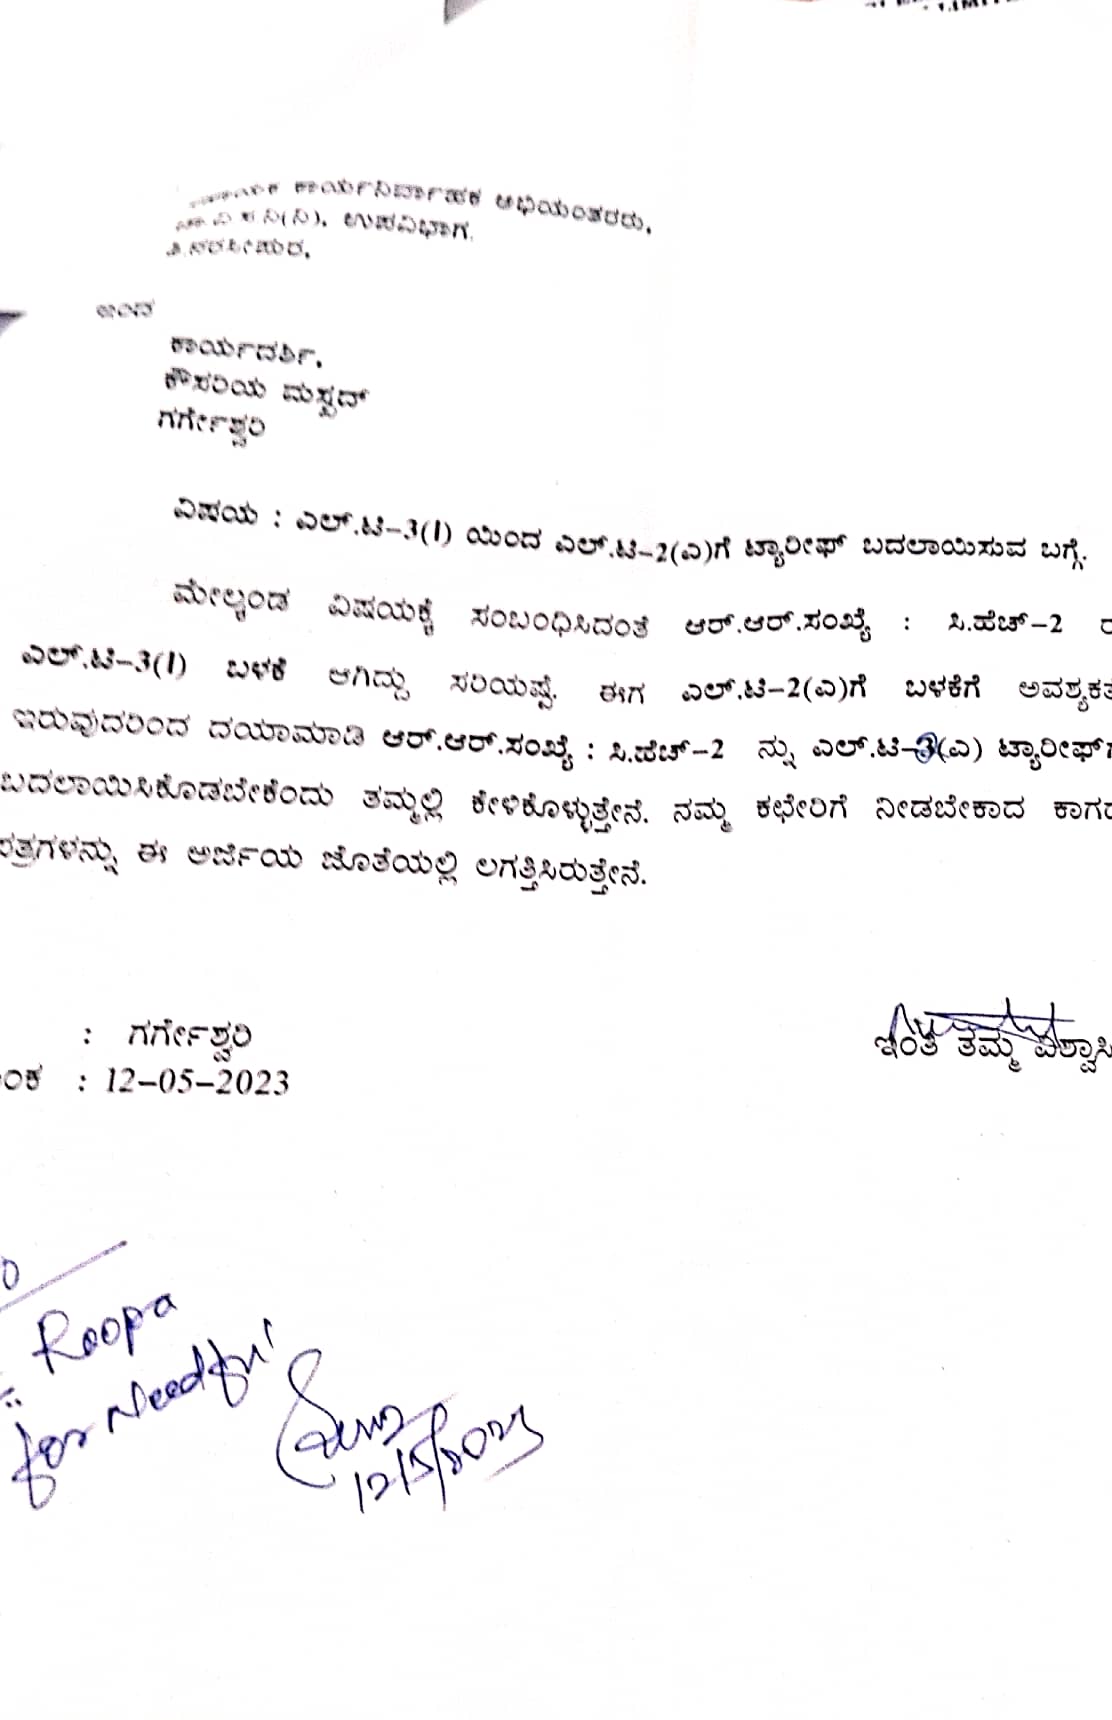 ಕಾರ್ಯನಿರ್ವಾಹಕ ಅಭಿಯಂತರರು,
ವಿ ಸ ನಿ(ನಿ), ಉಪವಿಭಾಗ,
ತಿ.ನರಸೀಪುರ,
ಇಂದ
ಕಾರ್ಯದರ್ಶಿ,
ಕೌಸರಿಯ ಮಸ್ಜಿದ್
ಗರ್ಗೇಶ್ವರಿ
ವಿಷಯ : ಎಲ್.ಟಿ-3(I) ಯಿಂದ ಎಲ್.ಟಿ-2(ಎ)ಗೆ ಟ್ಯಾರೀಫ್ ಬದಲಾಯಿಸುವ ಬಗ್ಗೆ.
ಮೇಲ್ಕಂಡ ವಿಷಯಕ್ಕೆ ಸಂಬಂಧಿಸಿದಂತೆ ಆರ್.ಆರ್.ಸಂಖ್ಯೆ : ಸಿ.ಹೆಚ್-2
ಎಲ್.ಟಿ-3(I) ಬಳಕೆ ಆಗಿದ್ದು ಸರಿಯಷ್ಟೆ. ಈಗ ಎಲ್.ಟಿ-2(ಎ)ಗೆ ಬಳಕೆಗೆ ಅವಶ್ಯಕತ
ಇರುವುದರಿಂದ ದಯಾಮಾಡಿ ಆರ್.ಆರ್.ಸಂಖ್ಯೆ : ಸಿ.ಹೆಚ್-2 ನ್ನು ಎಲ್.ಟಿ-2(ಎ) ಟ್ಯಾರೀಫ್‌ಗ
ಬದಲಾಯಿಸಿಕೊಡಬೇಕೆಂದು ತಮ್ಮಲ್ಲಿ ಕೇಳಿಕೊಳ್ಳುತ್ತೇನೆ. ನಮ್ಮ ಕಛೇರಿಗೆ ನೀಡಬೇಕಾದ ಕಾಗದ
ಪತ್ರಗಳನ್ನು ಈ ಅರ್ಜಿಯ ಜೊತೆಯಲ್ಲಿ ಲಗತ್ತಿಸಿರುತ್ತೇನೆ.
: ಗರ್ಗೇಶ್ವರಿ
ಇಂತಿ ತಮ್ಮ ವಿಶ್ವಾಸಿ
ಂಕ : 12-05-2023
Roopa
for Needful
12/5/2023